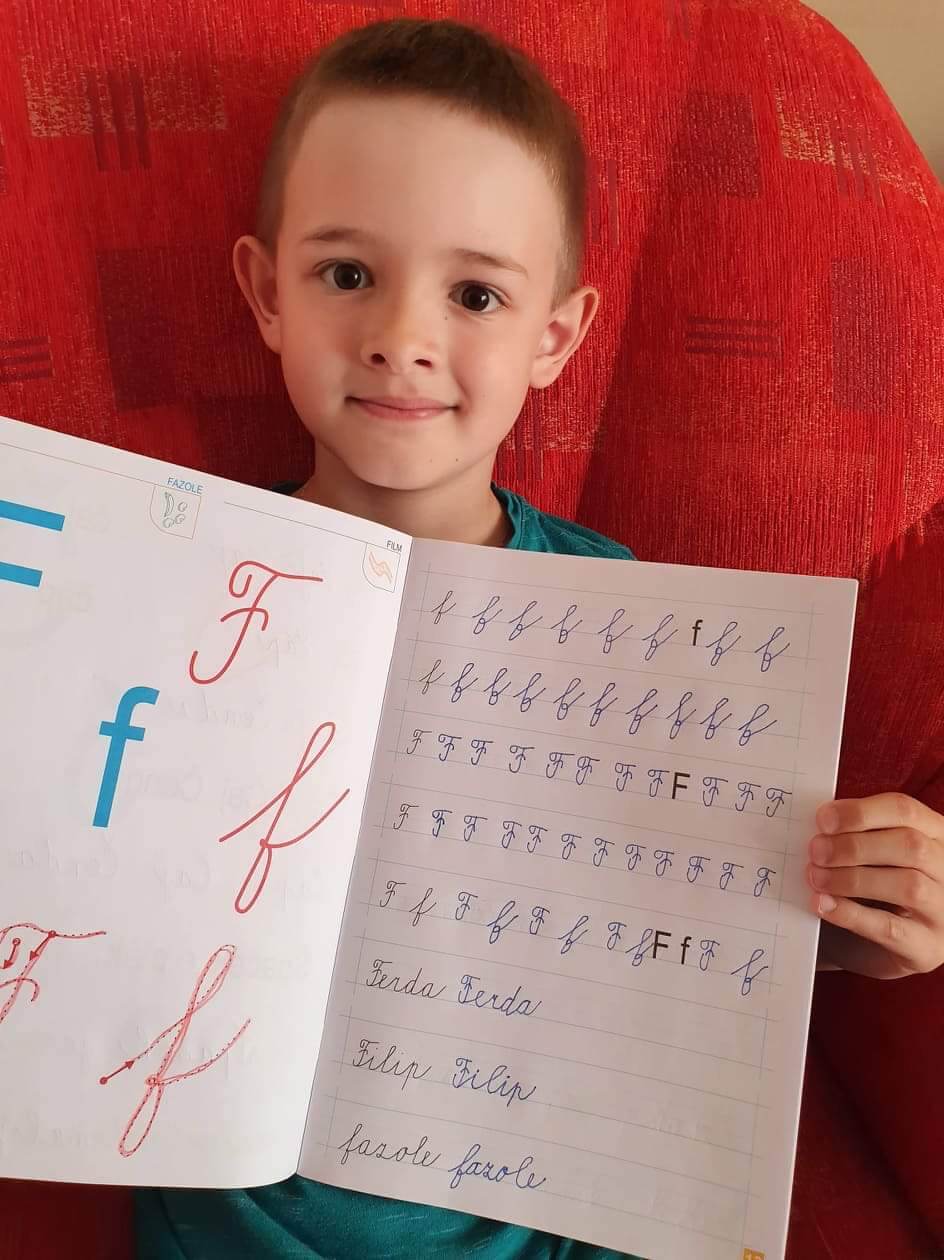 FAZOLE
FILM
F
F
f
f
F
f
f f f f f f f f f
f f f f f f f f f f
F F F F F F F F F F F F
F F F F F F F F F F F F
F f F f F f F f F f F f
Ferda Ferda
Filip Filip
fazole fazole